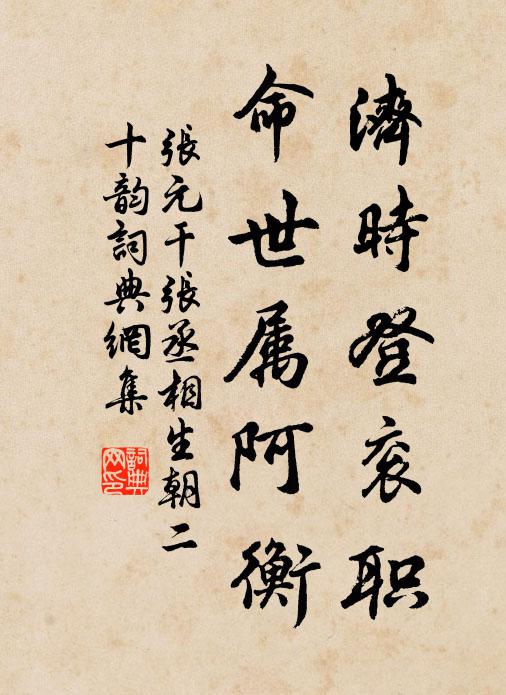 濟時登衮职
命世属阿衡
張元干張丞相生朝二
十韵詞典網集
詞典
网印